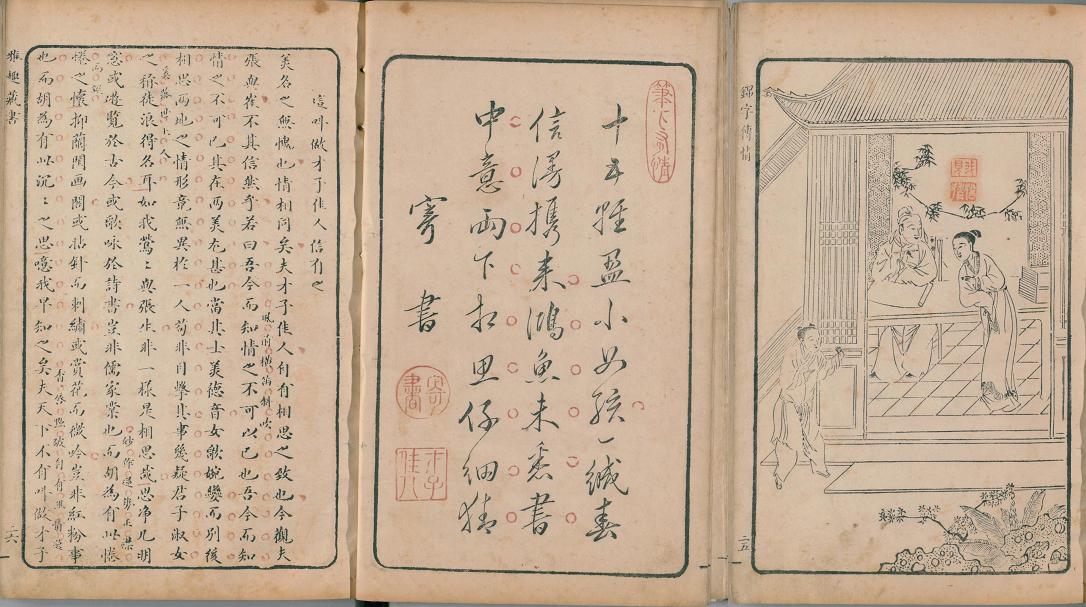 錦字傳情
二五
筆下多情
十五輕盈小女孩一緘春
信漫携来鴻魚未悉書
中意兩下相思仔細猜
寄書
寄書
才子佳人
這叫做才子佳人信有之
美名之無愧也情相同矣夫才子佳人自有相思之致也今觀夫
張與崔不其信然乎若曰吾今而知情之不可以已也吾今而知
風前橫笛斜吹
情之不可已其在兩美尤甚也當其士美德音女歌婉孌而別後
相思兩地之情形竟無異於一人苟非目擊其事幾疑君子淑女
之稱徒浪得名耳如我鶯〻與張生非一樣是相思哉思净几明
窓或遊覽於古今或歌咏於詩書豈非儒家業也而胡為有此惓
惓之懷抑蘭閨画閣或拈針而刺繡或賞花而微吟豈非紅粉事
也而胡為有此沉〻之思噫我早知之矣夫天下不有叫做才子
雅趣藏書
二六